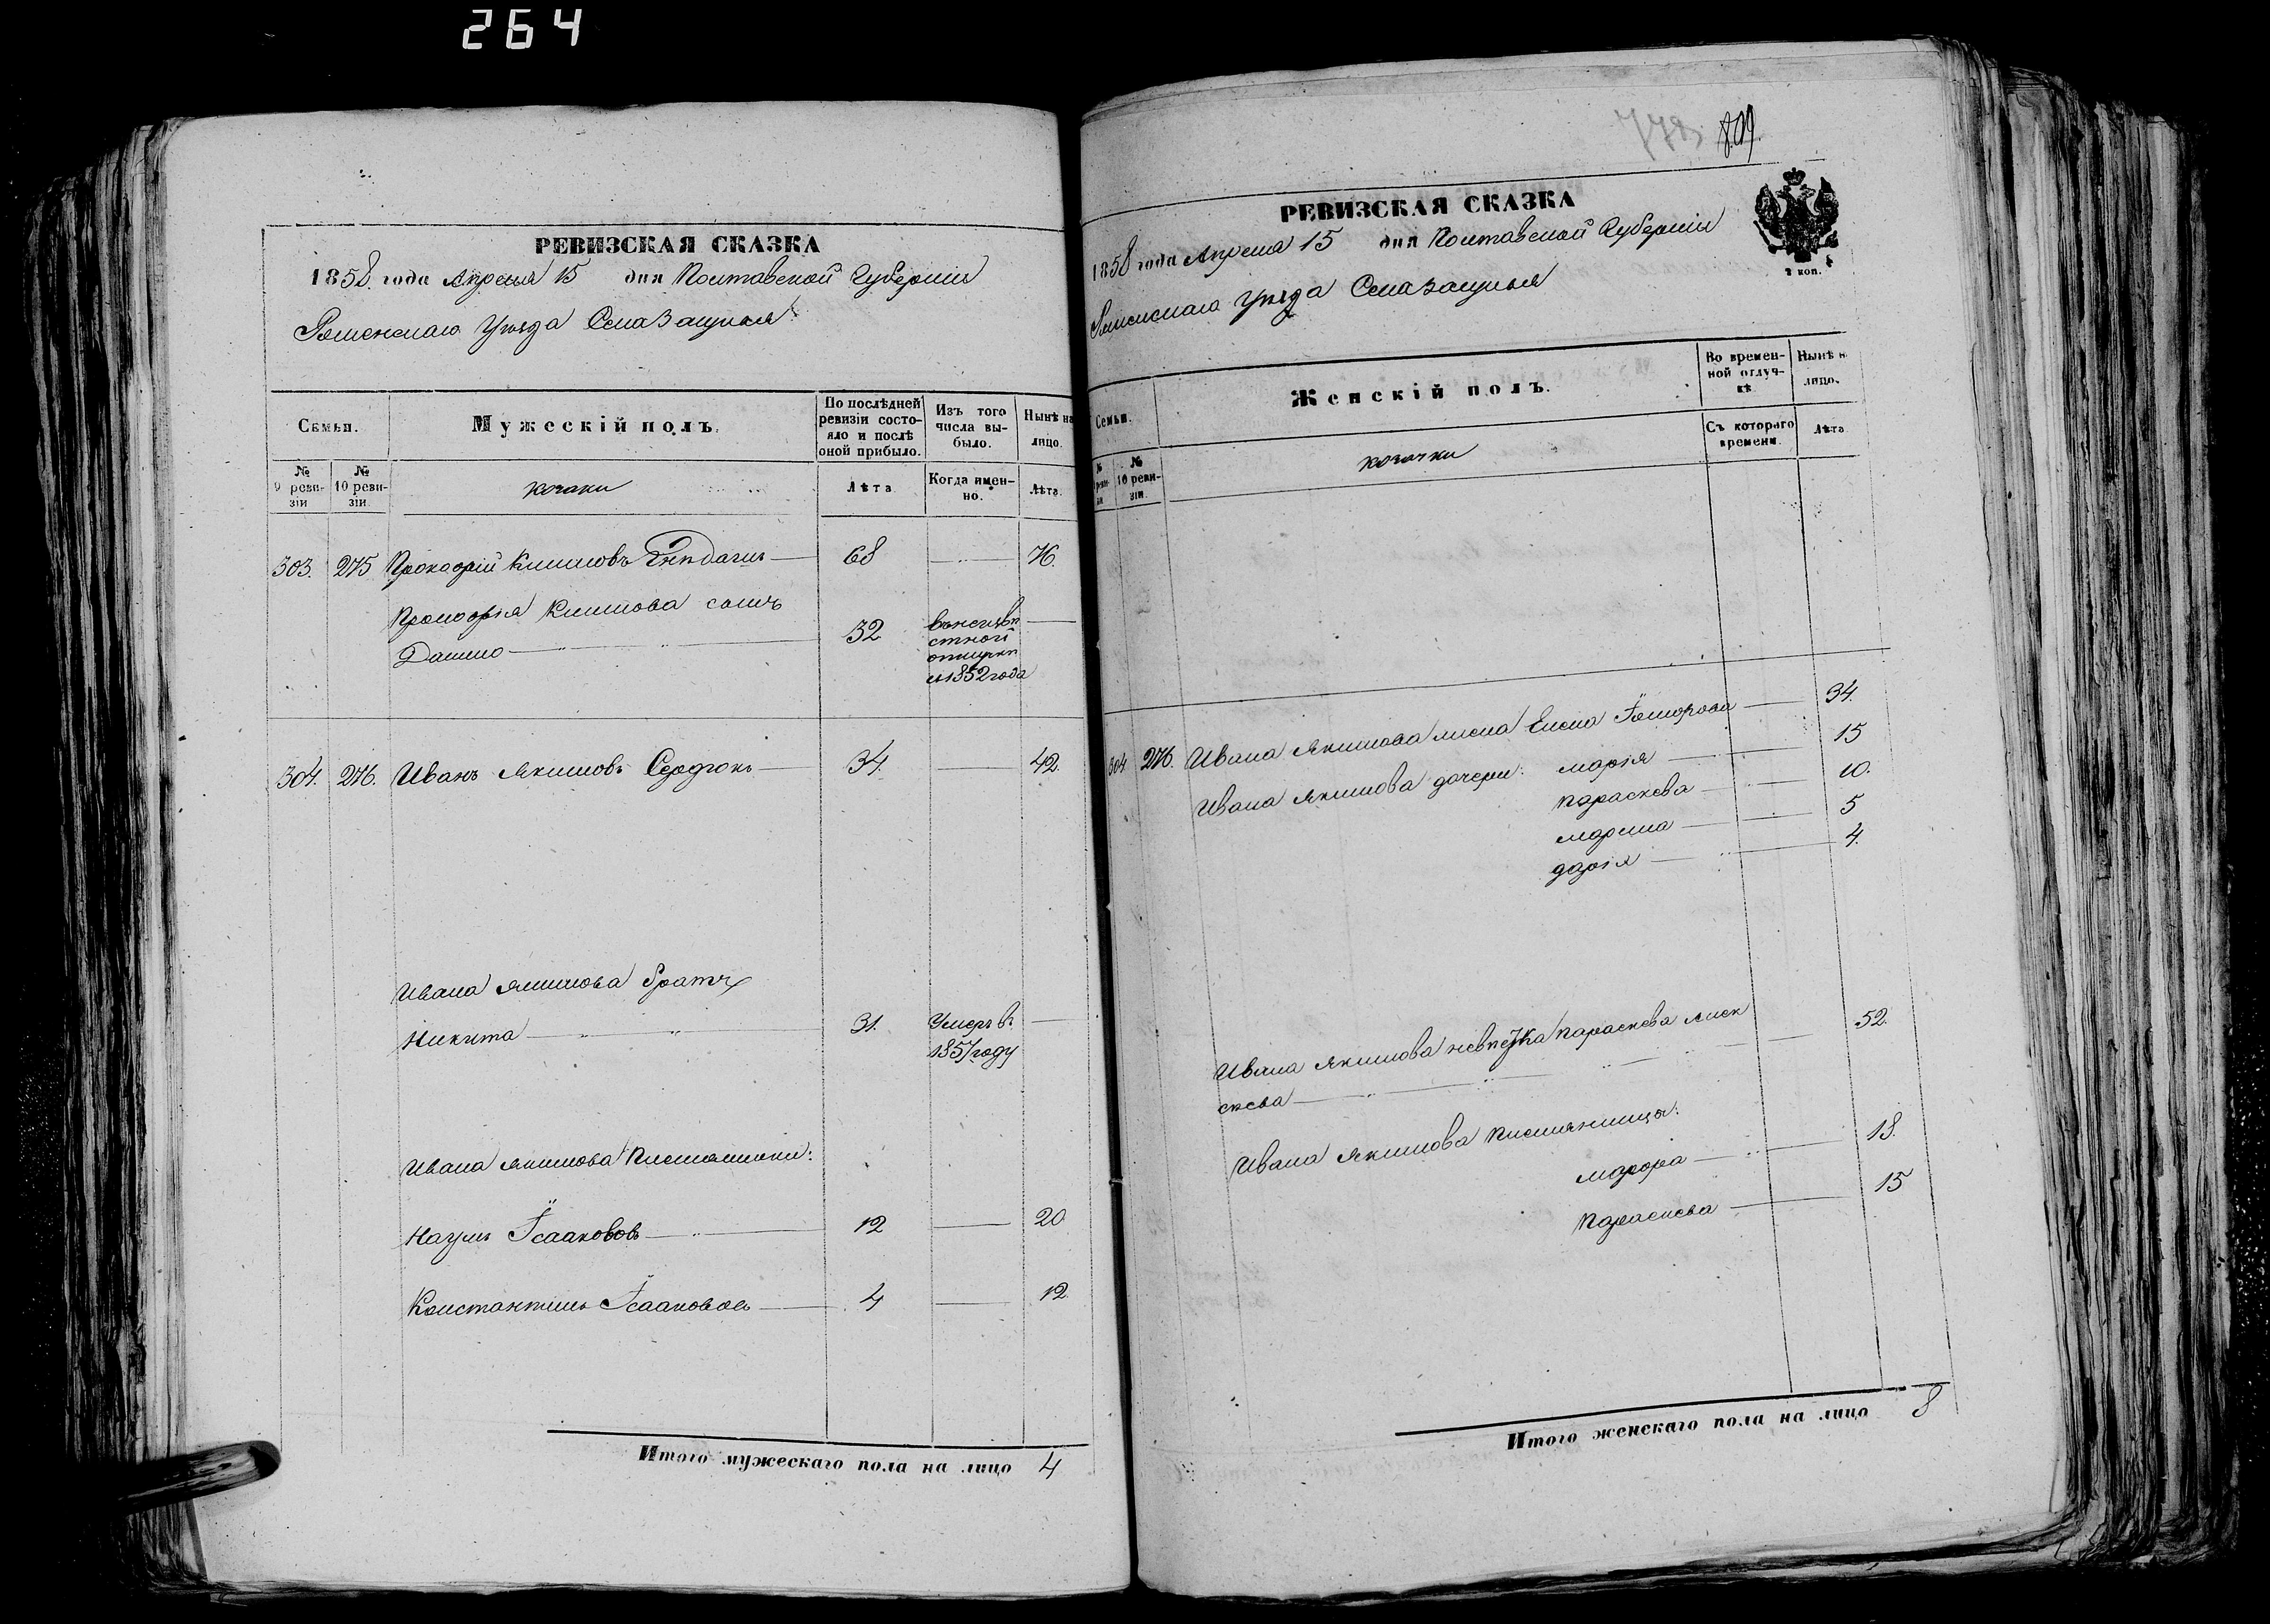 264
РЕВИЗСКАЯ СКАЗКА
1858. года Апреля 15 дня Полтавской Губернии
Роменскаго Уезда Села Зацилья
Семьи.
Мужескій полъ.
По послѣдней ревизіи состояло и послѣ оной прибыло.
Изъ того числа выбыло.
Нынѣ на лицо.
№ 9 ревизіи
№ 10 ревизіи.
козаки
Лѣта
Когда именно.
Лѣта.
303. 275 Прокофій Климовъ 68 76.
Прокофія Климова сынъ
Данило 32 въ неизвѣ
стной
отлучкѣ
съ 1852 года
304. 276. Иванъ Якимовъ Сердюкъ 34. 42.
Ивана Якимова братъ
Никита 31. Умеръ въ
1857 году
Ивана Якимова племянники:
Наумъ Їсааковъ 12 20
Константинъ Їсааковъ 4 12.
Итого мужескаго пола на лицо 4
809
РЕВИЗСКАЯ СКАЗКА
1858 года Апреля 15 дня Полтавской Губернии
Роменскаго Уезда Села Зацилья
2 коп.
Семьи.
Женскій полъ.
Во временной отлучкѣ
Нынѣ н лицо.
№ реви- зіи
№ 10 ревизіи.
козачки
Съ котораго времени.
Лѣта
304. 276. Ивана Якимова жена Елена 34.
Ивана Якимова дочери: Марія 15
Параскева 10.
Марина 5
Дарія 4.
Ивана Якимова невѣстка Параскева 52.
Ивана Якимова племянницы:
Марфа 18.
Параскева 15
Итого женскаго пола на лицо 8